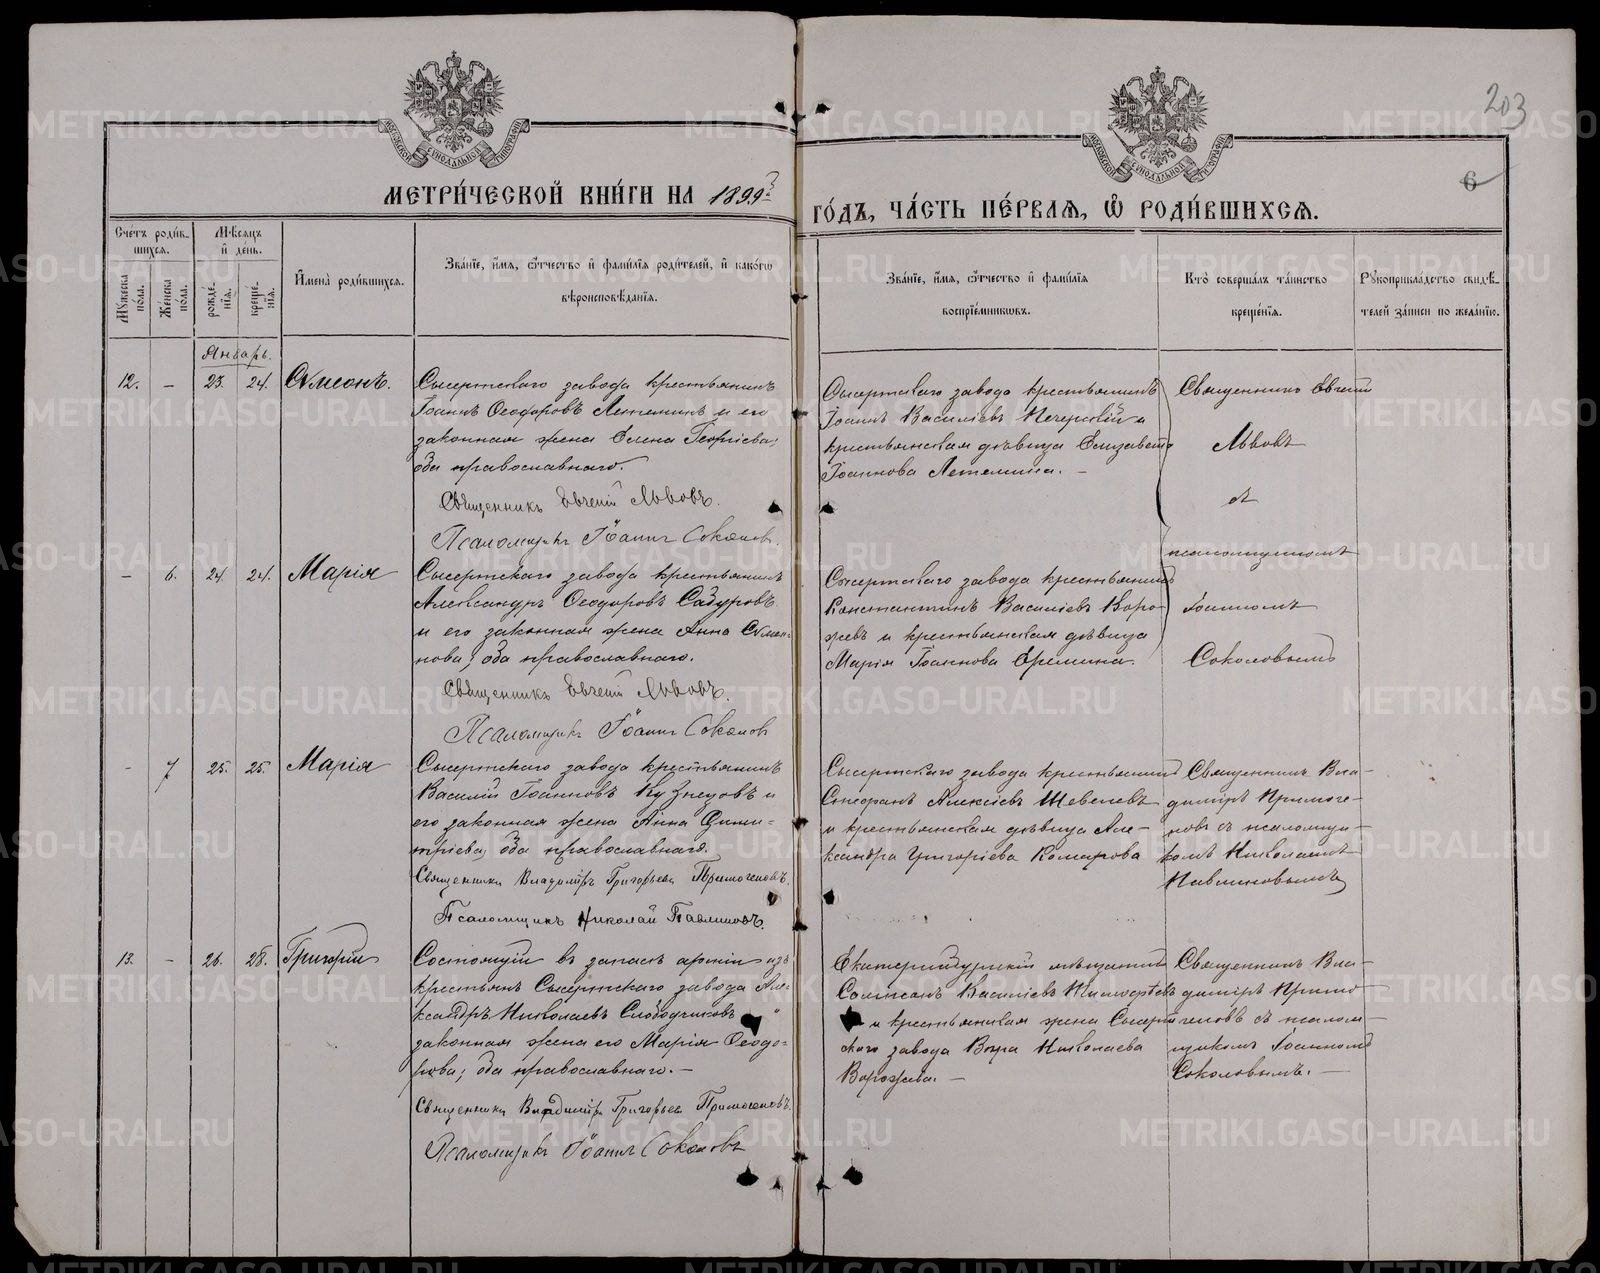 203
6
МЕТРИЧЕСКОЙ КНИГИ НА 1899й
ГОДЪ, ЧАСТЬ ПЕРВАЯ, Ѡ РОДИВШИХСЯ.
Счетъ родив-
шихся.
Мужеска пола.
Женска пола.
Мѣсяцъ и день.
рождения.
крещения.
Имена родившихся.
Званіе, имя, отчество и фамилія родителей, и какогѡ
вѣроисповѣданія.
Званіе, имя, отчество и фамилія
воспріемниковъ.
Кто совершалъ таинство
крещенія.
Рукоприкладство свидѣ-
телей записи по желанію.
Январь.
12. – 23. 24. Сѵмеонъ.
Сысертскаго завода крестьянинъ
Іоаннъ Ѳеодоровъ Летеминъ и его
законная жена Елена Георгіева;
оба православнаго.
Священникъ Евгеній Львовъ.
Псаломщикъ Іоаннъ Соколовъ.
Сысертскаго завода крестьянинъ
Іоаннъ Васильевъ Печерскій и
крестьянская дѣвица Елизавета
Іоаннова Летемина. –
Священникъ Евгеній
Львовъ
псаломщикомъ
Іоанномъ
Соколовымъ
– 6. 24. 24. Марія
Сысертскаго завода крестьянинъ
Александръ Ѳеодоровъ
и его законная жена Анна Сѵмео-
нова; оба православнаго.
Священникъ Евгеній Львовъ.
Псаломщикъ Іоаннъ Соколовъ
Сысертскаго завода крестьянинъ
Константинъ Васильевъ Воро-
жевъ и крестьянская дѣвица
Марія Іоаннова Еремина.
– 7 25. 25. Марія
Сысертскаго завода крестьянинъ
Василій Іоанновъ Кузнецовъ и
его законная жена Анна Дими-
тріева; оба православнаго.
Священникъ Владиміръ Григорьевъ Примогеновъ.
Псаломщикъ Николай Павлиновъ.
Сысертскаго завода крестьянинъ
Алексіевъ Шевелевъ
и крестьянская дѣвица Але-
ксандра Григоріева Комарова
Священникъ Вла-
димиръ Примоге-
новъ съ псаломщи-
комъ Николаемъ
Павлиновымъ
13. – 26. 28. Григорій
Состоящій въ запасѣ арміи изъ
крестьянъ Сысертскаго завода Але-
ксандръ Николаевъ Слободчиковъ и
законная жена его Марія Ѳеодо-
рова; оба православнаго. –
Священникъ Владиміръ Григорьевъ Примогеновъ.
Псаломщикъ Іоаннъ Соколовъ
Екатеринбургскій мѣщанинъ
Васильевъ
и крестьянская жена Сысерт-
скаго завода Вѣра Николаева
Ворожева. –
Священникъ Вла-
димиръ Примо-
геновъ съ псалом-
щикомъ Іоанномъ
Соколовымъ. –